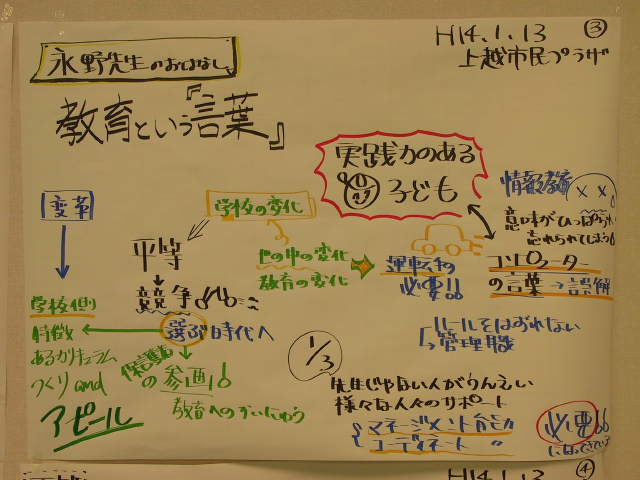 H14.1.13 ③
上越市民プラザ
永野先生のおはなし
教育という『言葉』
実践力のある
子ども
変革
学校の変化
平等
競争
世の中の変化
教育の変化
運転手の
必要!!
情報教育
意味がひっぱられ
忘れられてしまう
コンピューター
の言葉→誤解
学校側
特徴
あるカリキュラム
づくり and
アピール
選ぶ時代へ
保護者
の参画!
教育へのかいにゅう
ルールをはずれない
管理職
1/3
先生じゃない人がうんえい
様々な人々のサポート
マネージメント能力
コーディネート 〃
必要!!
になってきている
H14.1.13 ④